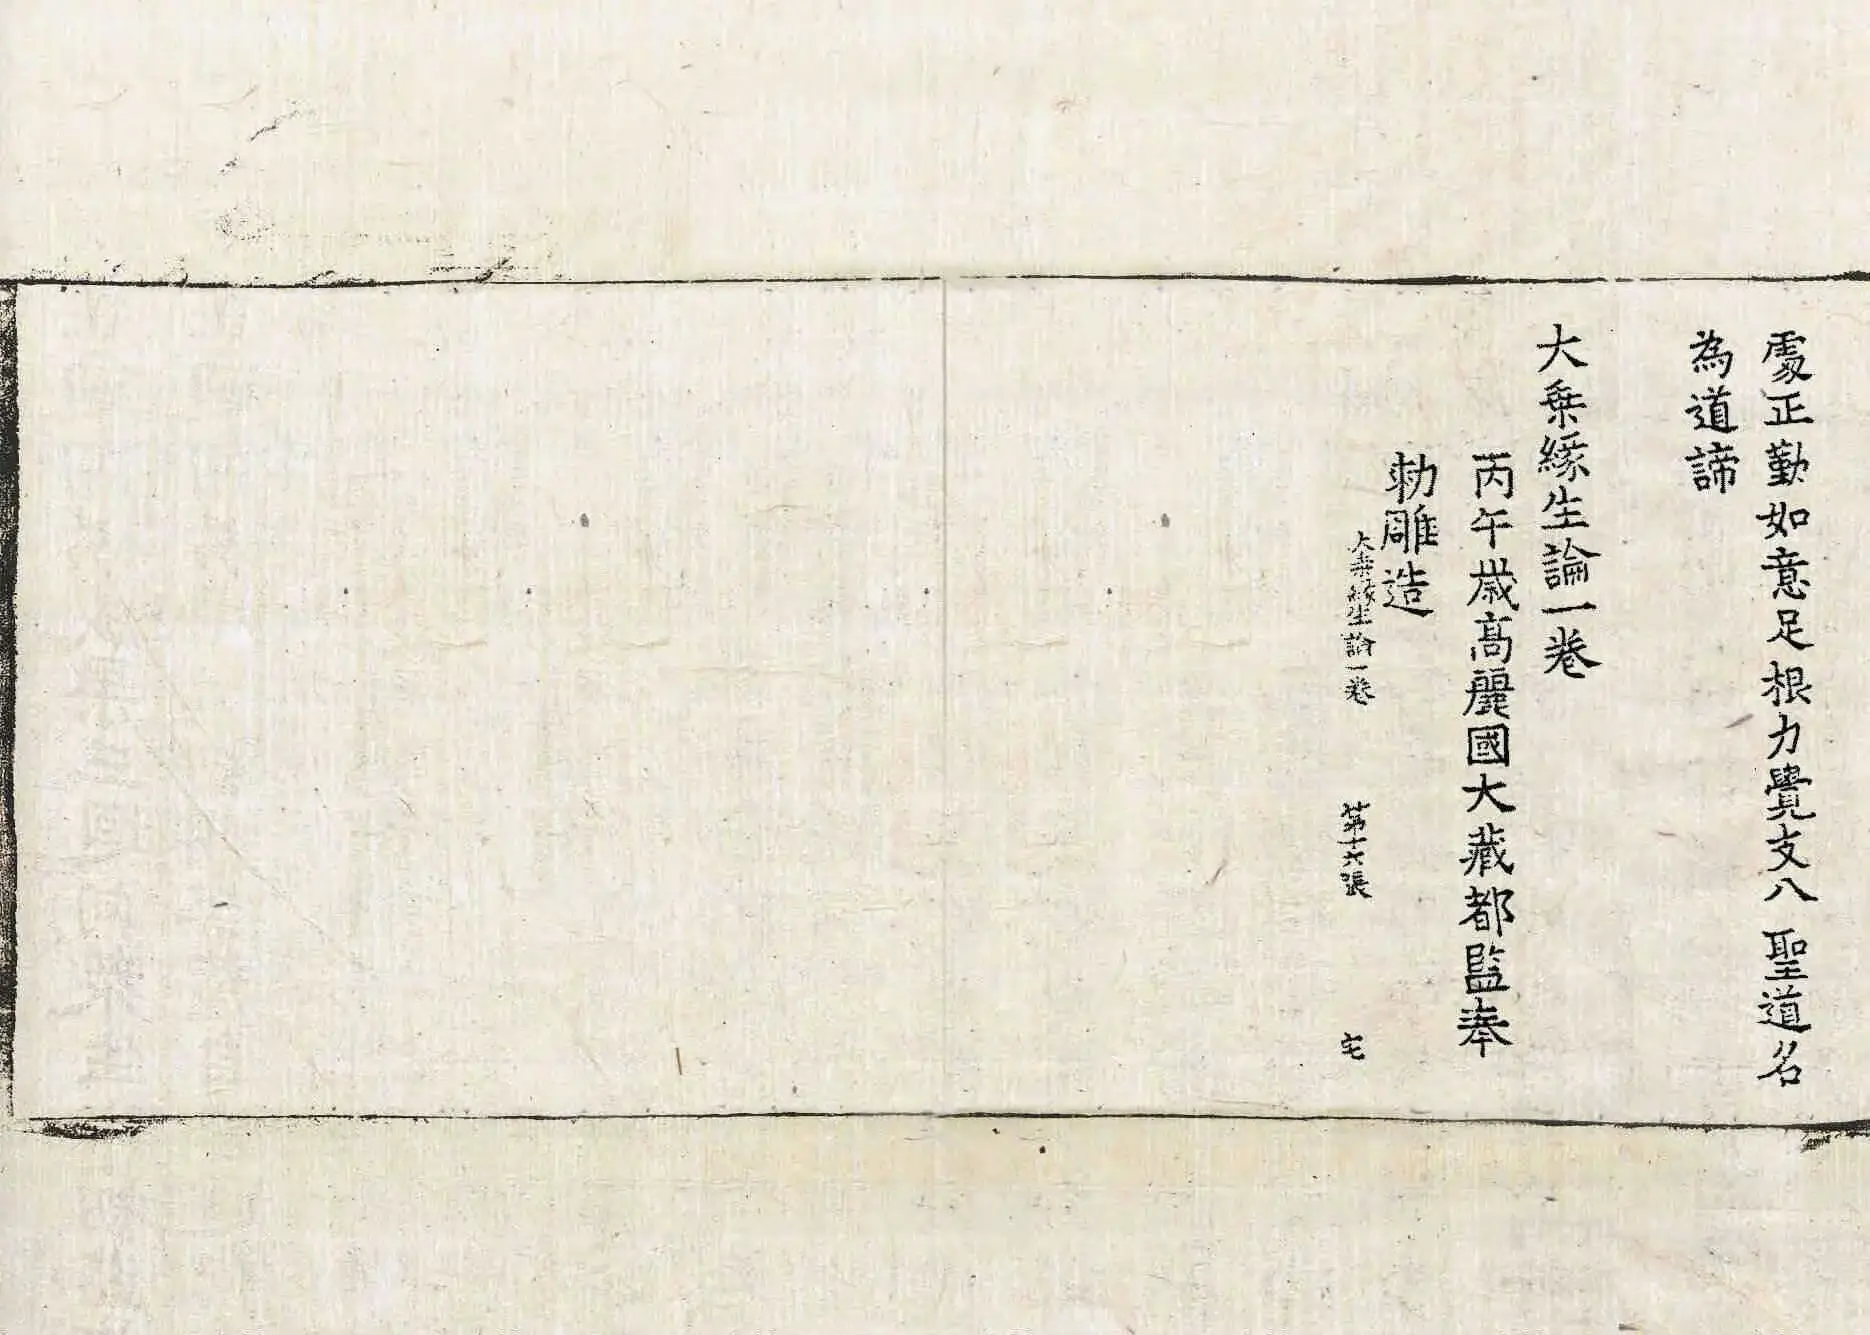 處正勤如意足根力覺支八聖道名
為道諦
大乗緣生論一卷
丙午歲高麗國大藏都監奉
勅雕造
大乗緣生論一卷 第十六張 宅